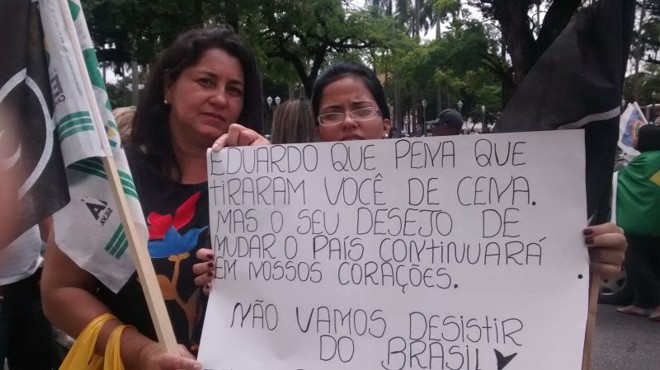 EDUARDO QUE PENA QUE
TIRARAM VOCÊ DE CENA.
MAS O SEU DESEJO DE
MUDAR O PAÍS CONTINUARÁ
EM NOSSOS CORAÇÕES.
NÃO VAMOS DESISTIR
DO BRASIL